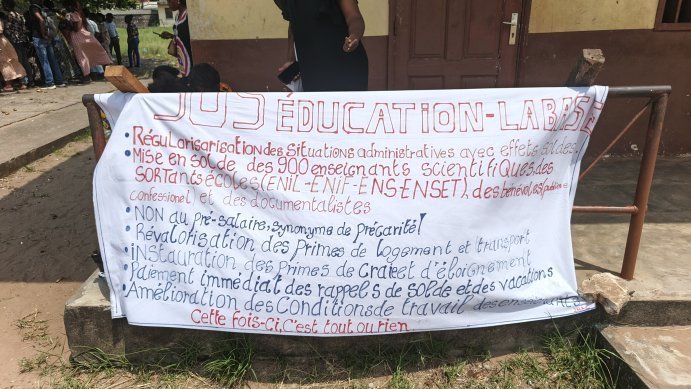 SOS ÉDUCATION-LA BASE
• RÉGULARISARISATION des SITUATIONS administratives avec effets soldes
• Mise en solde des 900 enseignants scientifiques, des
SORTANTS écoles (ENIL-ENIF-ENS-ENSET), des bénévoles
confessionel et des documentalistes
• NON au pré-salaire, synonyme de précarité!
• Révalorisation des primes de logement et transport
• iNSTAURATION des PRIMES de CRAIE et d'éloignement
• PAIEMENT immédiat des rappels de solde et des vacations
• Amélioration des Conditions de travail des
Cette fois-ci, C'est tout ou rien